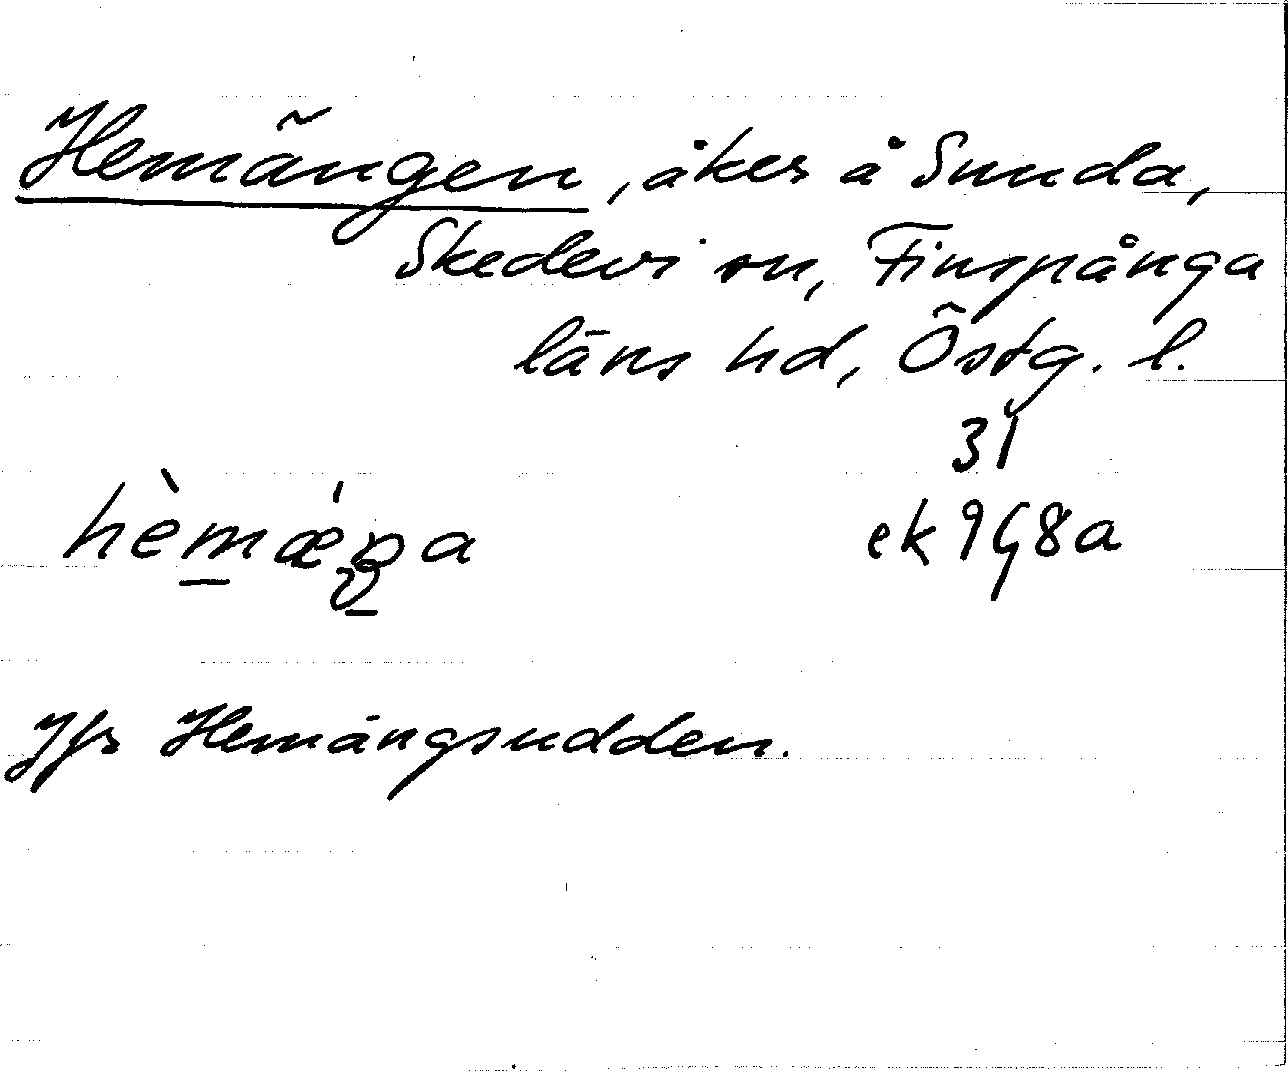 Hemängen, åker å Sunda,
Skedevi sn, Finspånga
läns hd, Östg. l.
31
hèmǽŋa
ek 9G8a
Jfr Hemängsudden.